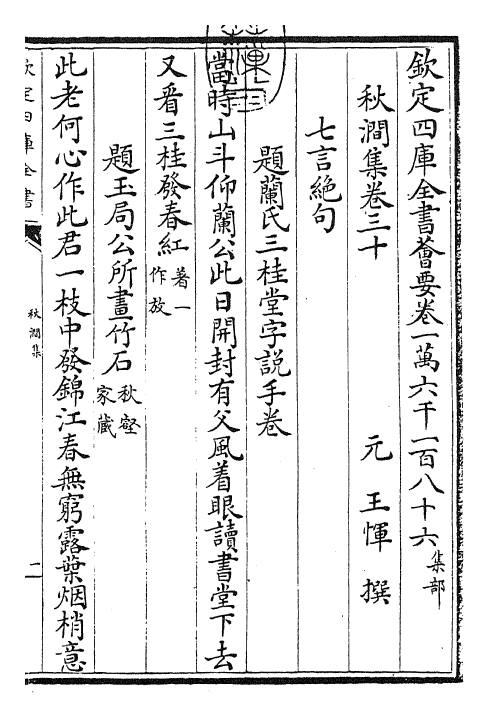 欽定四庫全書薈要卷一萬六千一百八十六集部
秋澗集卷三十　元　王惲　撰
七言絶句
題蘭氏三桂堂字說手卷
當時山斗仰蘭公此日開封有父風着眼讀書堂下去
又看三桂發春紅着一作放
題玉局公所畫竹石秋壑家藏
此老何心作此君一枝中發錦江春無窮露葉烟梢意
欽定四庫全書
秋澗集
二